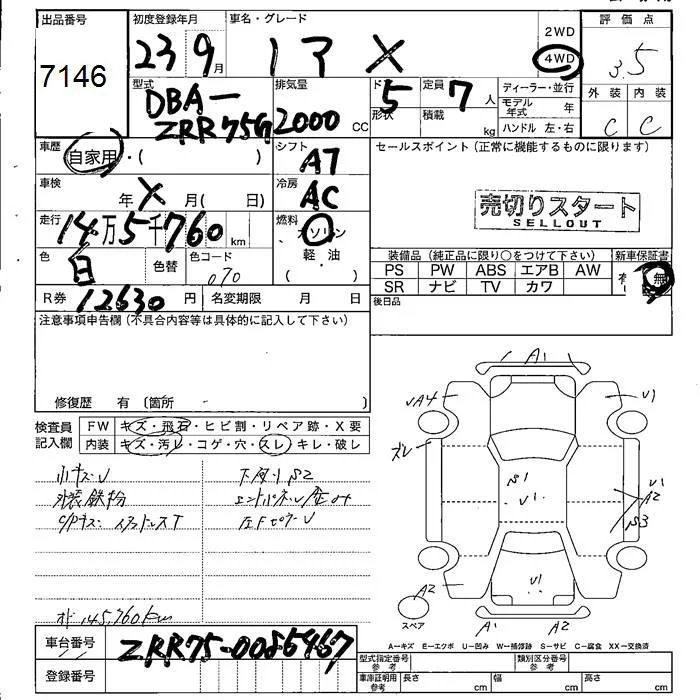 出品番号
7146
初度登録年月
23 9月
車名・グレード
ノア X
2WD
4WD
評価点
3.5
外装 内装
C C
型式
DBA-
ZRR75G
排気量
2000 CC
ドア
5
形状
定員
7人
積載
kg
ディーラー・並行
モデル年式 年
ハンドル 左・右
車歴
自家用・( )
シフト
AT
セールスポイント(正常に機能するものに限ります)
車検
年 X 月( 日)
冷房
AC
売切りスタート
SELLOUT
走行
14万5千760 km
燃料
ガソリン
軽・油
( )
色
白
色替
色コード
070
装備品(純正品に限り○をつけて下さい)
新車保証書
PS PW ABS エアB AW
SR ナビ TV カワ
有 無
R券 12630円
名変期限 月 日
後日品
注意事項申告欄(不具合内容等は具体的に記入して下さい)
修復歴 有 (箇所 )
検査員
記入欄
FW キズ・飛石・ヒビ割・リペア跡・X要
内装 キズ・汚レ・コゲ・穴・スレ・キレ・破レ
小キズU
下廻りS2
外装鉄粉
オド 145,760km
A1
UA4
U1
ズレ
S1
U1
U1
A2
S3
A2
U1
A1
A2
スペア
A-キズ E-エクボ U-凹み W-補修跡 S-サビ C-腐食 XX-交換済
車台番号
ZRR75-0085467
登録番号
型式指定番号
参考
類別区分番号
参考
車庫証明用
参考
長さ cm
幅 cm
高さ cm